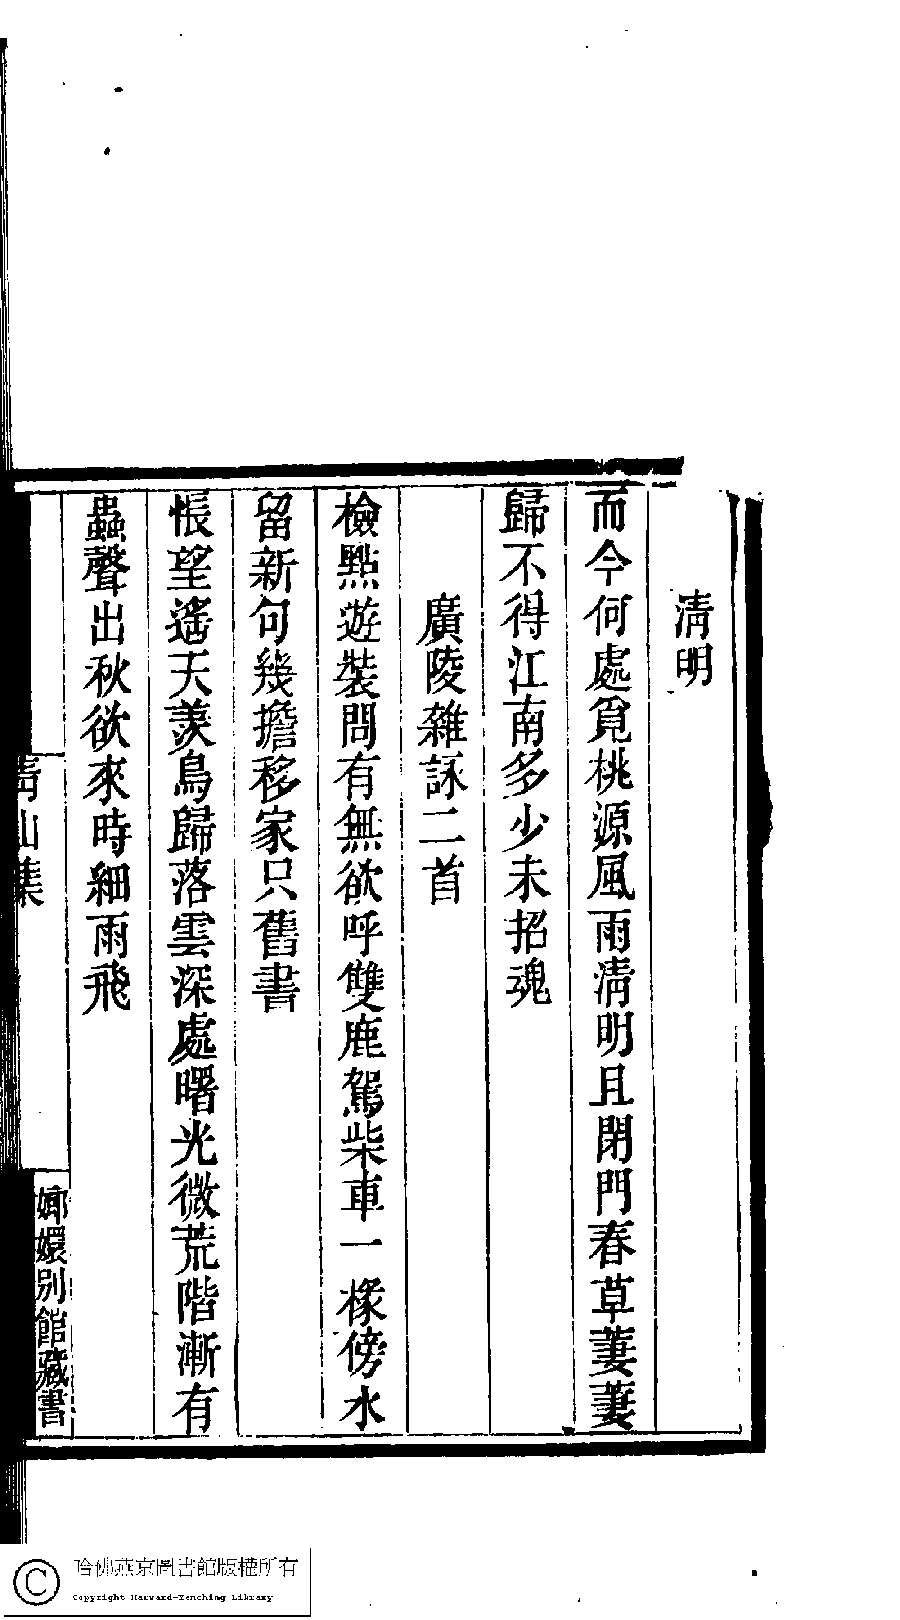 清明
而今何處覓桃源風雨清明且閉門春草萋萋
歸不得江南多少未招魂
廣陵雜詠二首
檢點遊裝問有無欲呼雙鹿駕柴車一椽傍水
留新句幾擔移家只舊書
悵望遙天羨鳥歸落雲深處曙光微荒階漸有
蟲聲出秋欲來時細雨飛
青山集
嫏嬛別館藏書
哈佛燕京圖書館版權所有
Copyright Harvard-Yenching Library